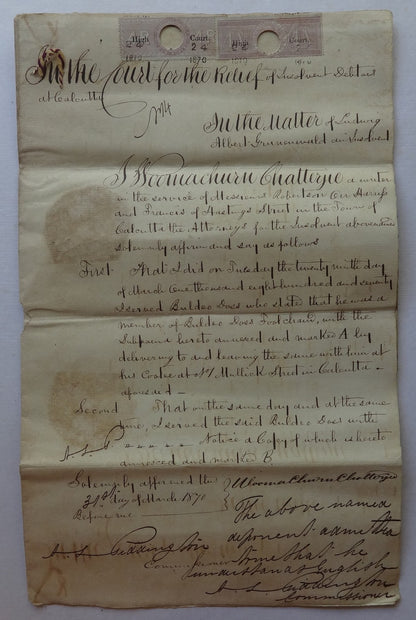 High Court
24
1870
High Court
1870
In the Court for the Relief of Insolvent Debtors
at Calcutta
In the Matter of Ludwig
Albert Gruenenwald an Insolvent
I Woomachurn Chatterjee a writer
in the service of Messieurs Robertson Orr Harriss
and Francis of Hastings Street in the Town of
Calcutta the Attorneys for the Insolvent abovenamed
Solemnly affirm and say as follows
First That I did on Tuesday the twenty ninth day
of March One thousand eight hundred and seventy
I served Buldeo Doss who stated that he was a
member of Buldeo Doss Footchund, with the
Subpoena hereto annexed and marked A by
delivering to and leaving the same with him at
his Cootee at Mullick Street in Calcutta
aforesaid
Second That on the same day and at the same
time, I served the said Buldeo Doss with
A. L. P. Notice a Copy of which is hereto
annexed and marked B.
Solemnly affirmed this
31st day of March 1870
Before me
Woomachurn Chatterjee
The above named
deponent admitted
to me that he
understands English
A. L. Piddington
Commissioner
A. L. Piddington
Commissioner